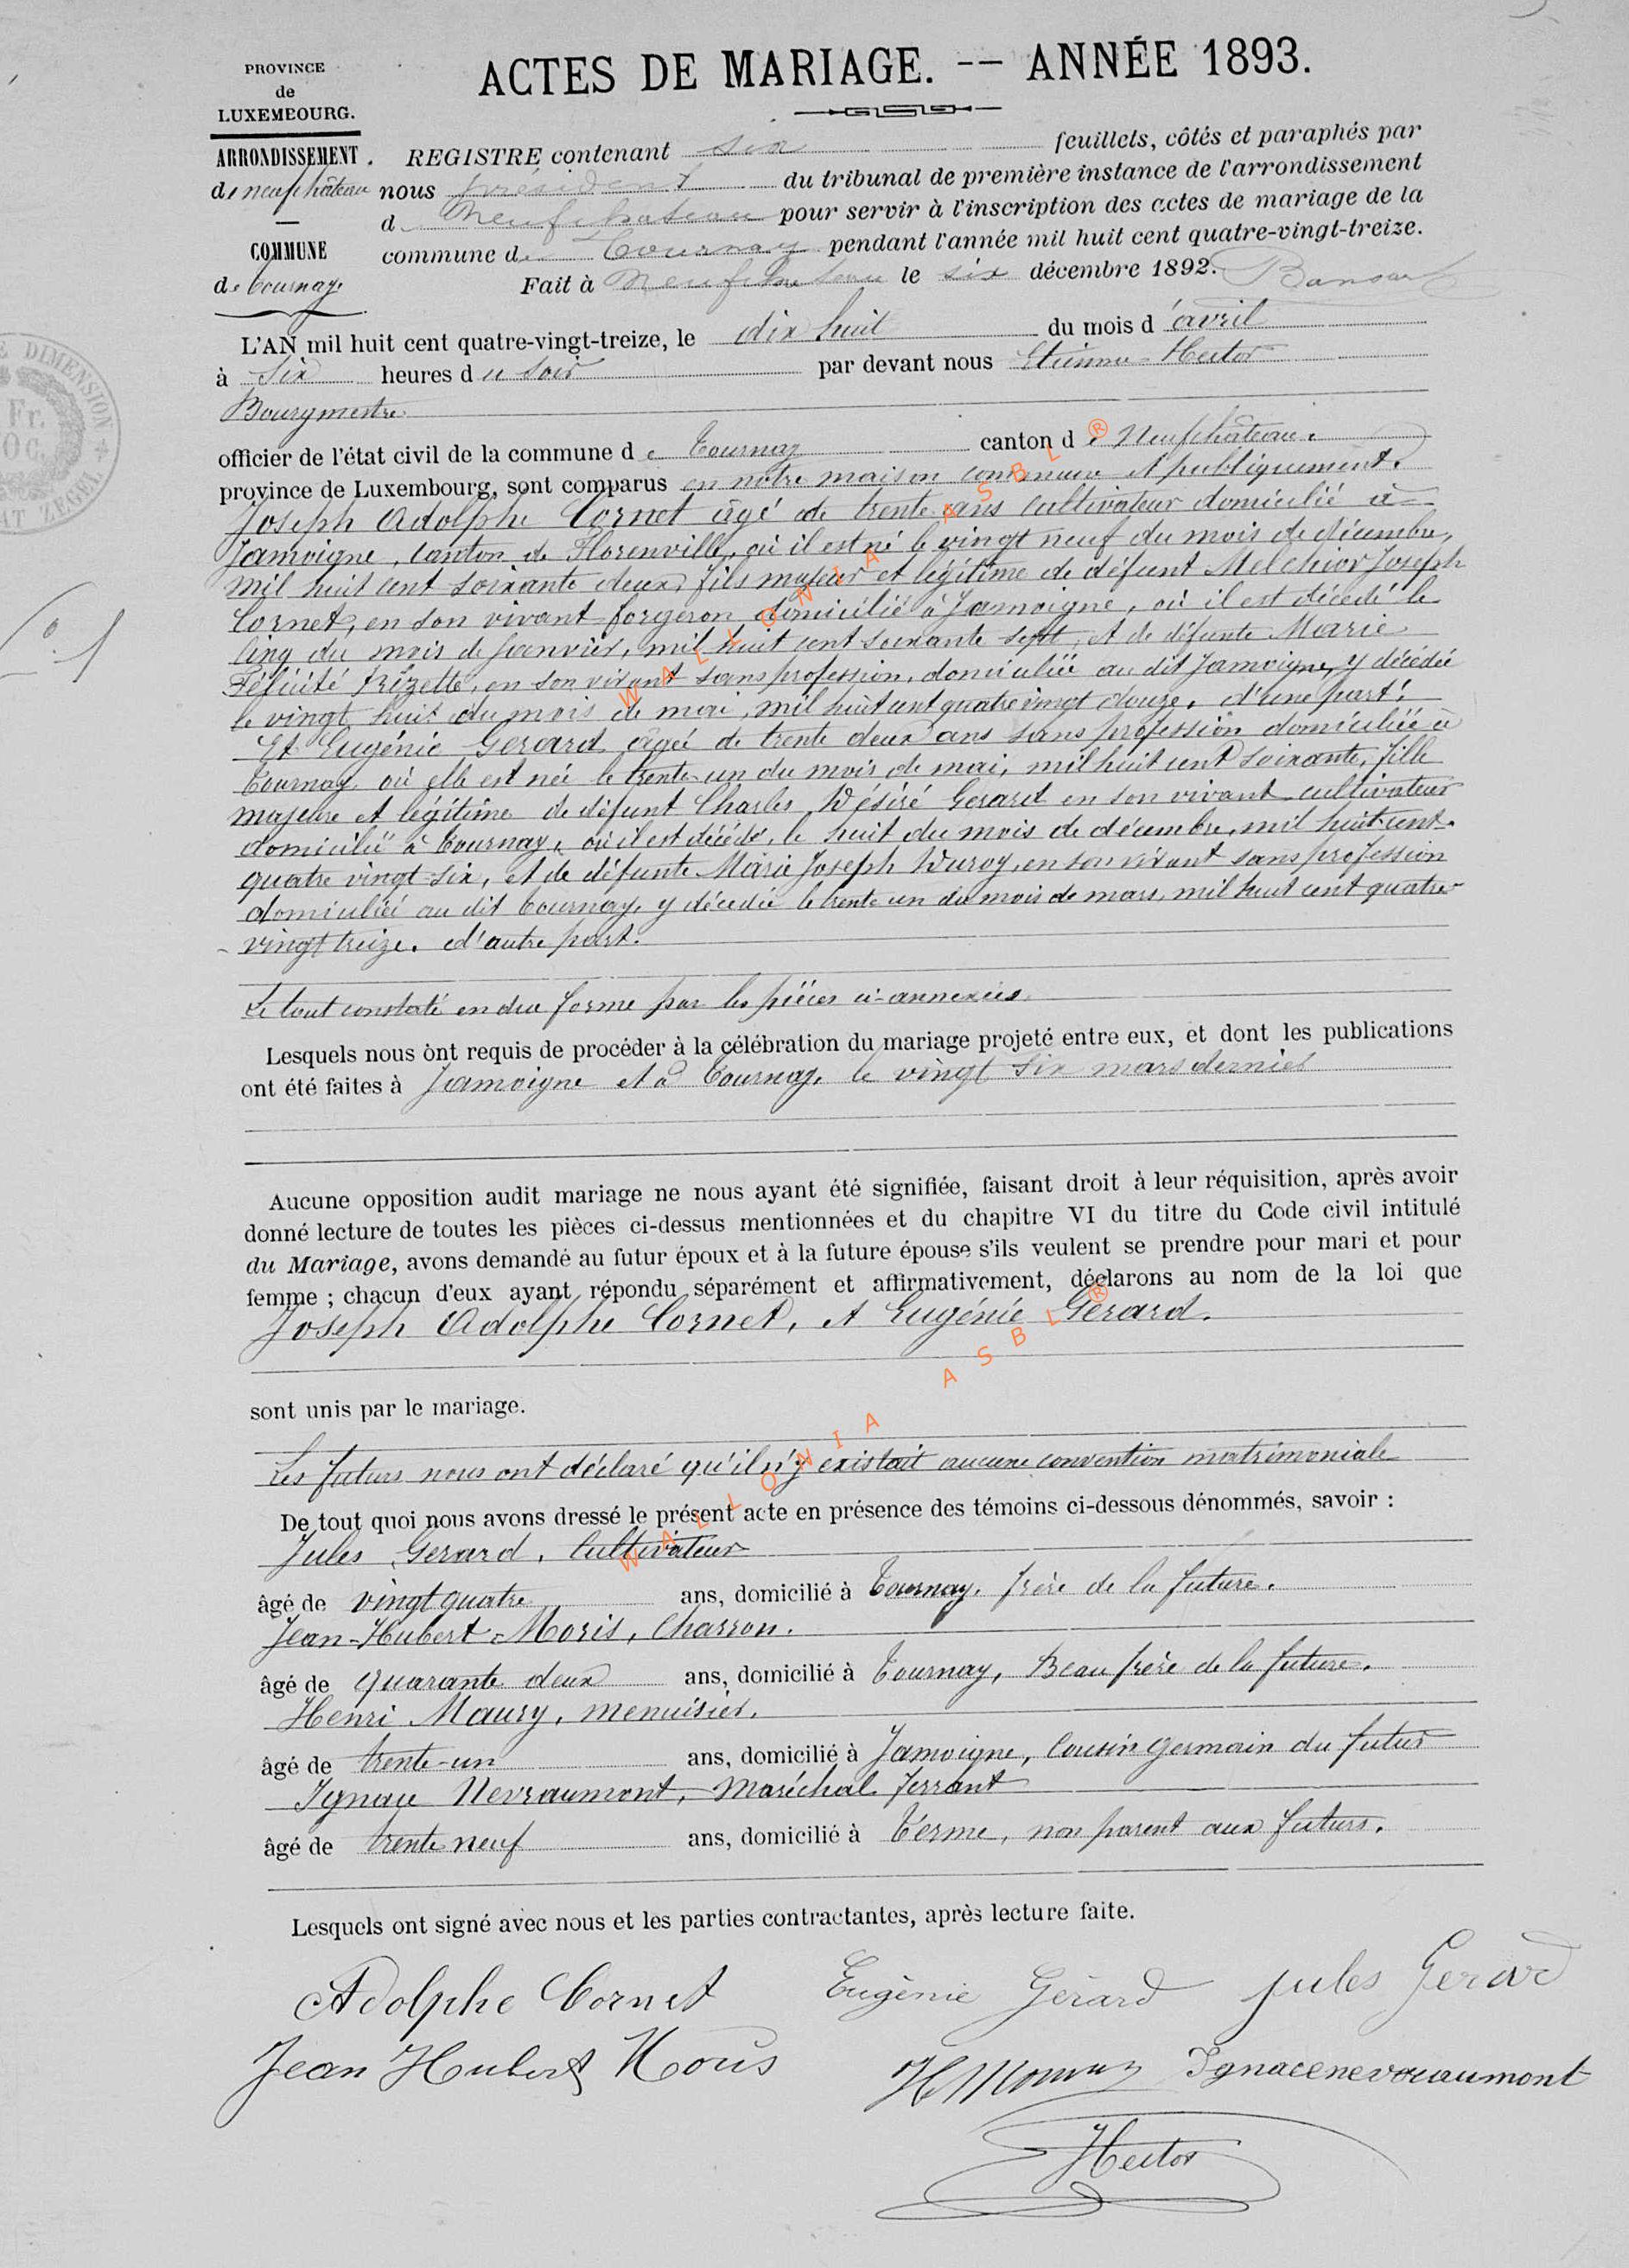 PROVINCE
de
LUXEMBOURG.
ARRONDISSEMENT.
de neufchâteau
COMMUNE
de Tournay
ACTES DE MARIAGE. -- ANNÉE 1893.
REGISTRE contenant six feuillets, côtés et paraphés par
nous président du tribunal de première instance de l'arrondissement
d Neufchateau pour servir à l'inscription des actes de mariage de la
commune de Tournay pendant l'année mil huit cent quatre-vingt-treize.
Fait à Neufchateau le six décembre 1892.
L'AN mil huit cent quatre-vingt-treize, le dix huit du mois d'avril
à six heures du soir par devant nous Etienne Hector
Bourgmestre
officier de l'état civil de la commune de Tournay canton de Neufchâteau.
province de Luxembourg, sont comparus en notre maison commune et publiquement.
Joseph Adolphe Cornet âgé de trente ans cultivateur domicilié à
Jamoigne, canton de Florenville, où il est né le vingt neuf du mois de décembre,
mil huit cent soixante deux, fils majeur et légitime de défunt Melchior Joseph
Cornet, en son vivant forgeron domicilié à Jamoigne, où il est décédé le
cinq du mois de Janvier, mil huit cent soixante sept, et de défunte Marie
Félicité Rizette, en son vivant sans profession, domiciliée au dit Jamoigne, y décédée
le vingt huit du mois de mai, mil huit cent quatre vingt douze, d'une part;
Et Eugénie Gerard âgée de trente deux ans sans profession domiciliée à
Tournay où elle est née le trente-un du mois de mai, mil huit cent soixante, fille
majeure et légitime de défunt Charles Désiré Gerard en son vivant cultivateur
domicilié à Tournay, où il est décédé, le huit du mois de décembre, mil huit cent
quatre vingt-six, et de défunte Marie Joseph Duroy, en son vivant sans profession
domiciliée au dit Tournay, y décédée le trente un du mois de mars, mil huit cent quatre-
vingt treize. d'autre part.
Le tout constaté en due forme par les pièces ci-annexées.
Lesquels nous ont requis de procéder à la célébration du mariage projeté entre eux, et dont les publications
ont été faites à Jamoigne et à Tournay, le vingt six mars dernier
Aucune opposition audit mariage ne nous ayant été signifiée, faisant droit à leur réquisition, après avoir
donné lecture de toutes les pièces ci-dessus mentionnées et du chapitre VI du titre du Code civil intitulé
du Mariage, avons demandé au futur époux et à la future épouse s'ils veulent se prendre pour mari et pour
femme ; chacun d'eux ayant répondu séparément et affirmativement, déclarons au nom de la loi que
Joseph Adolphe Cornet, et Eugénie Gerard.
sont unis par le mariage.
Les futurs nous ont déclaré qu'il n'y existait aucune convention matrimoniale
De tout quoi nous avons dressé le présent acte en présence des témoins ci-dessous dénommés, savoir :
Jules Gerard, Cultivateur
âgé de vingt quatre ans, domicilié à Tournay, frère de la future.
Jean-Hubert Moris, Charron.
âgé de quarante deux ans, domicilié à Tournay, Beau frère de la future.
Henri Maury, menuisier.
âgé de trente-un ans, domicilié à Jamoigne, Cousin germain du futur
Ignace Nevraumont, Maréchal ferrant
âgé de trente neuf ans, domicilié à Terme, non parent aux futurs.
Lesquels ont signé avec nous et les parties contractantes, après lecture faite.
Adolphe Cornet Eugénie Gérard Jules Gerard
Jean Hubert Moris H Maury Ignace nevraumont
Hector
WALLONIA ASBL®
WALLONIA ASBL®